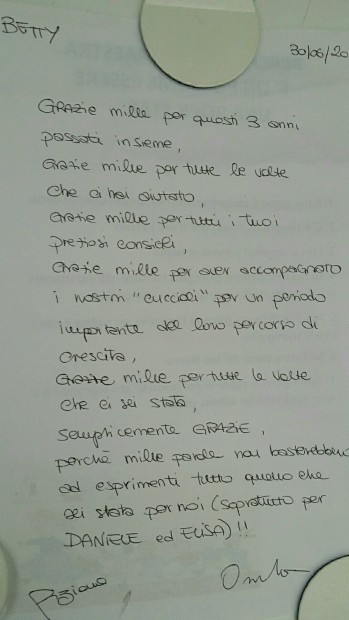 BETTY
30/06/20
GRAZIE mille per questi 3 anni
passati insieme,
Grazie mille per tutte le volte
che ci hai aiutato,
Grazie mille per tutti i tuoi
preziosi consigli,
Grazie mille per aver accompagnato
i nostri "cuccioli" per un periodo
importante del loro percorso di
crescita,
Grazie mille per tutte le volte
che ci sei stata,
semplicemente GRAZIE,
perchè mille parole non basterebbero
ad esprimerti tutto quello che
sei stata per noi (soprattutto per
DANIELE ed ELISA)!!